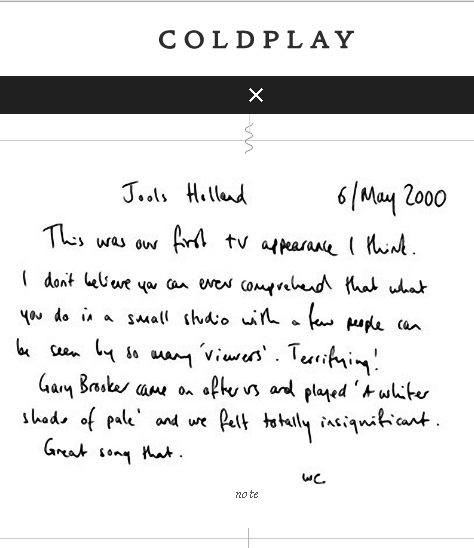 COLDPLAY
Jools Holland 6/May 2000
This was our first tv appearance I think.
I don't believe you can ever comprehend that what
you do in a small studio with a few people can
be seen by so many 'viewers'. Terrifying!
Gary Brooker came on after us and played 'A whiter
shade of pale' and we felt totally insignificant.
Great song that.
WC
note